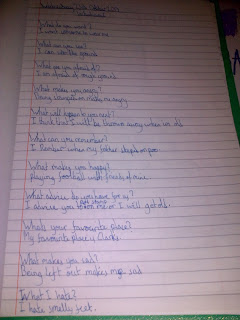 What do you want?
I want someone to wear me.
What can you see?
I can see the ground.
What are you afraid of?
I am afraid of
What makes you angry?
Being makes me angry
What will happen to you next?
I think that I will be thrown away when im old.
What can you remember?
I remember when my father stepped on poo.
What makes you happy?
Playing football with friends of mine.
What advice do you have for us?
I advise you to clean me or I will get old.
What's your favourite place?
My favourite place is Clarks.
What makes you sad?
Being left out makes me sad
What I hate?
I hate smelly feet.